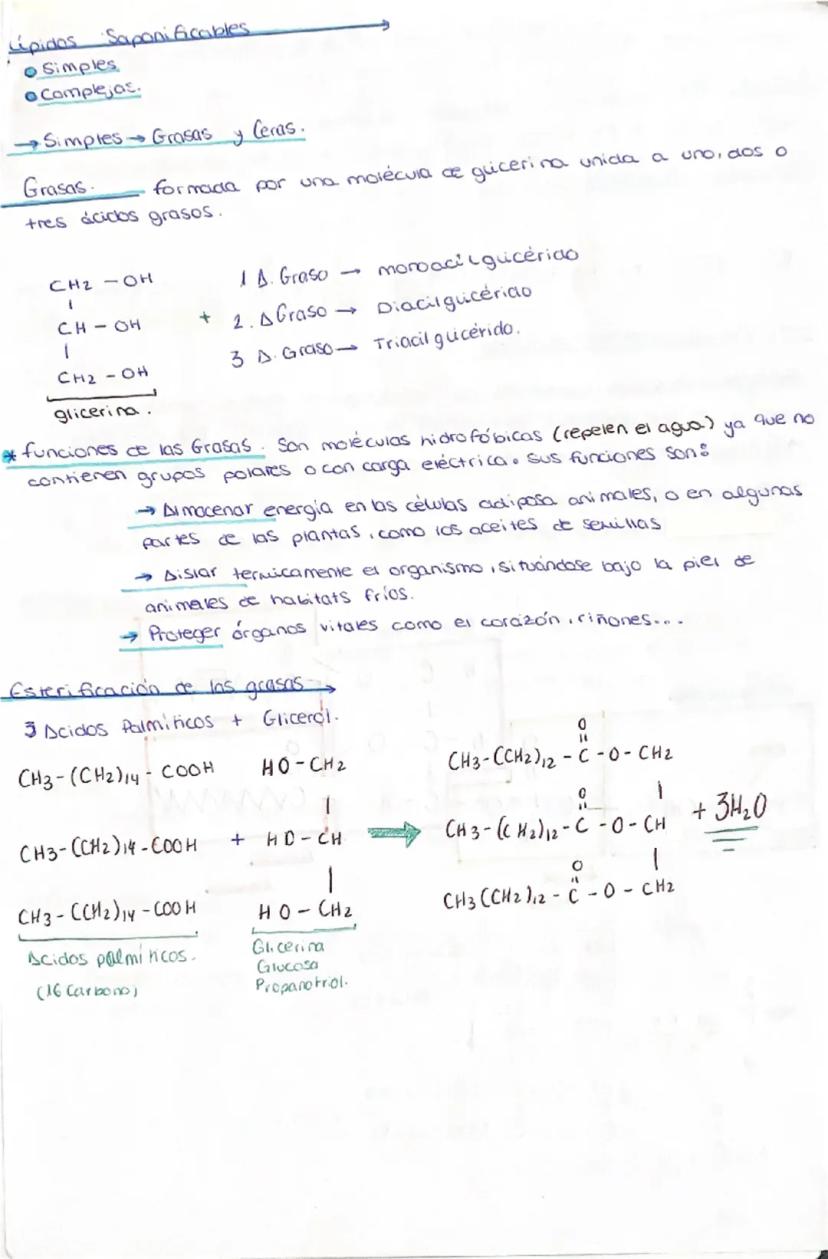 Lípidos Saponificables
Simples
Complejos.
→ Simples → Grasas y Ceras.
Grasas. formada por una molécula de glicerina unida a uno, dos o
tres ácidos grasos.
CH2 - OH 1 A. Graso → monoacilglicérido
CH - OH + 2. A Graso → Diacilglicérido
CH2 - OH 3 A. Graso → Triacilglicérido.
glicerina.
* funciones de las Grasas. Son moléculas hidrofóbicas (repelen el agua) ya que no
contienen grupos polares o con carga eléctrica. Sus funciones son:
→ Almacenar energía en las células adiposa animales, o en algunas
partes de las plantas, como los aceites de semillas
→ Aislar termicamente el organismo, situándose bajo la piel de
animales de habitats fríos.
→ Proteger órganos vitales como el corazón, riñones...
Esterificación de las grasas →
3 Acidos Palmíticos + Glicerol.
CH3-(CH2)14 - COOH HO-CH2 CH3-(CH2)12 - C - O - CH2
O
CH3-(CH2)14-COOH + HO-CH → CH3-(CH2)12-C - O - CH + 3H2O
O
CH3-(CH2)14-COOH HO-CH2 CH3(CH2)12 - C - O - CH2
O
Acidos palmíticos. Glicerina
(16 Carbono) Glucosa
Propanotriol.